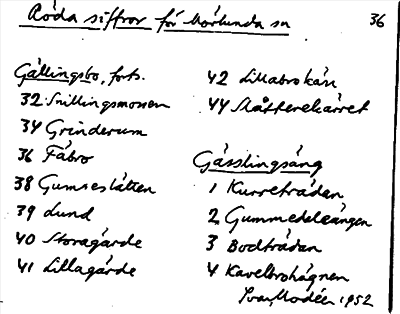 Röda siffror för Mörlunda sn 36
Gällingsbo, forts.
32 Snillingsmossen
34 Grinderum
36 Fäbro
38 Gumseslätten
39 Lund
40 Storagärde
41 Lillagärde
42 Lillabrokärr
44 Skåtterekärret
Gässlingsäng
1 Kurreträdan
2 Gummedeleängen
3 Bodträdan
4 Kavelbrohägnen
Ivar Modéer 1952